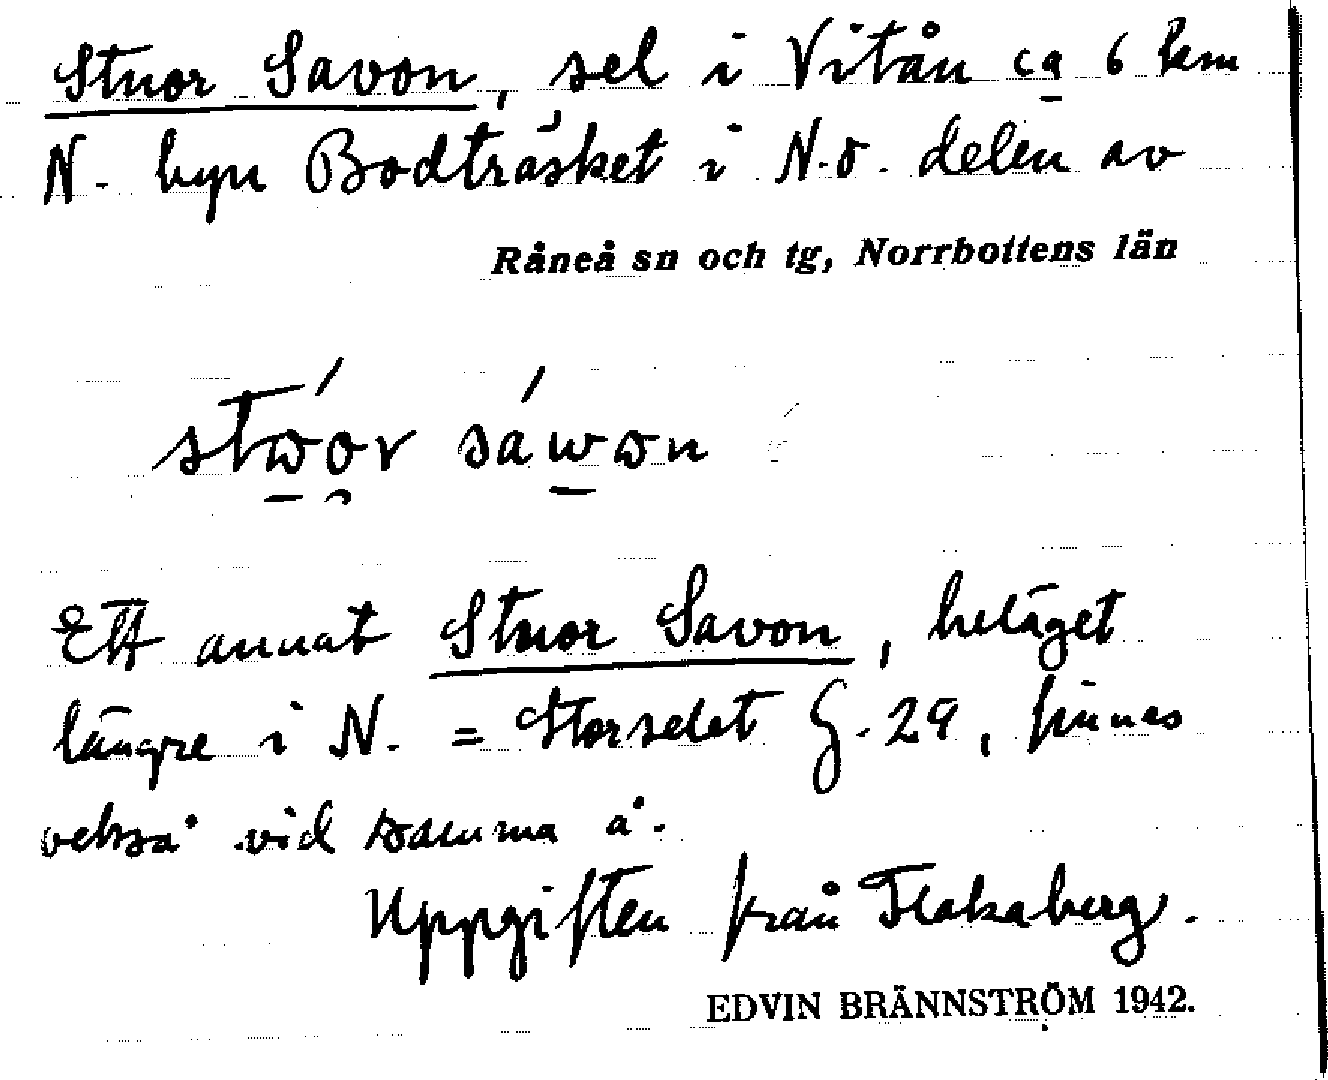 Stuor Savon, sel i Vitån ca 6 km
N. byn Bodträsket i N.ö. delen av
Råneå sn och tg, Norrbottens län
sáwωn
Ett annat Stuor Savon, beläget
längre i N. = Storselet G. 29, finnes
också vid samma å.
Uppgiften från Flakaberg.
EDVIN BRÄNNSTRÖM 1942.